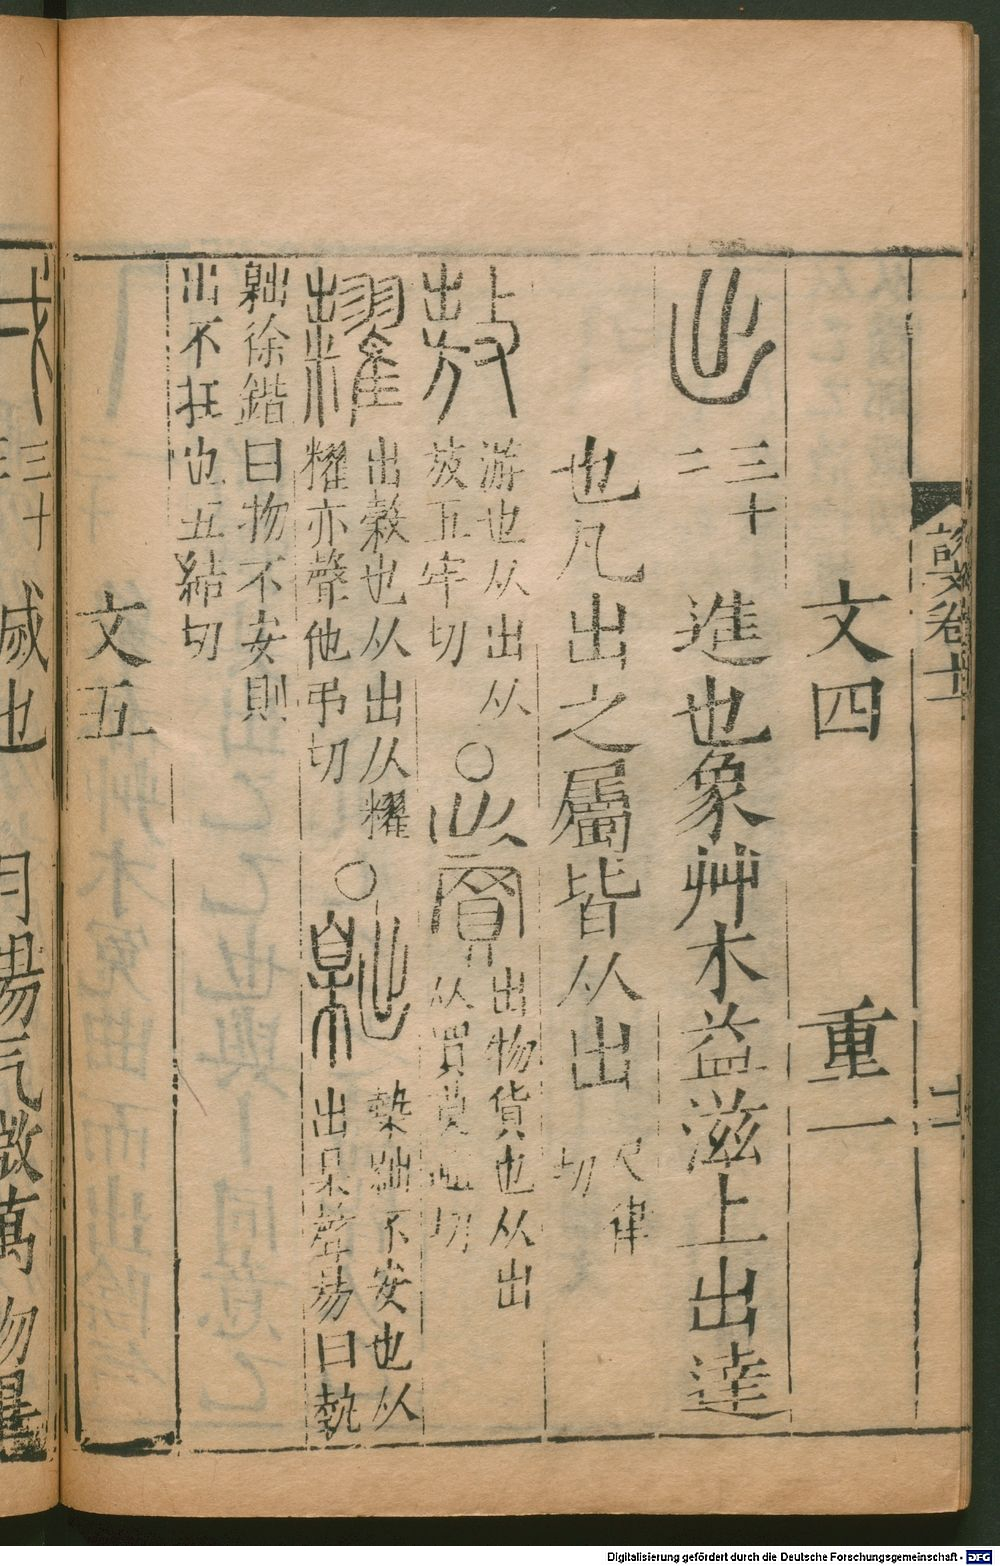 說文卷十二
十二
文四 重一
出 三十二 進也象艸木益滋上出達
也凡出之屬皆从出 尺律切
敖 游也从出从
放五牢切
○賣 出物貨也从出
从買莫邂切
糶 出穀也从出从糴
糴亦聲他弔切
○𣎴 槷黜不安也从
出臬聲易曰執
黜徐鍇曰物不安則
出不在也五結切
文五
戌 三十三 滅也 月陽气微萬物畢
Digitalisierung gefördert durch die Deutsche Forschungsgemeinschaft - DFG